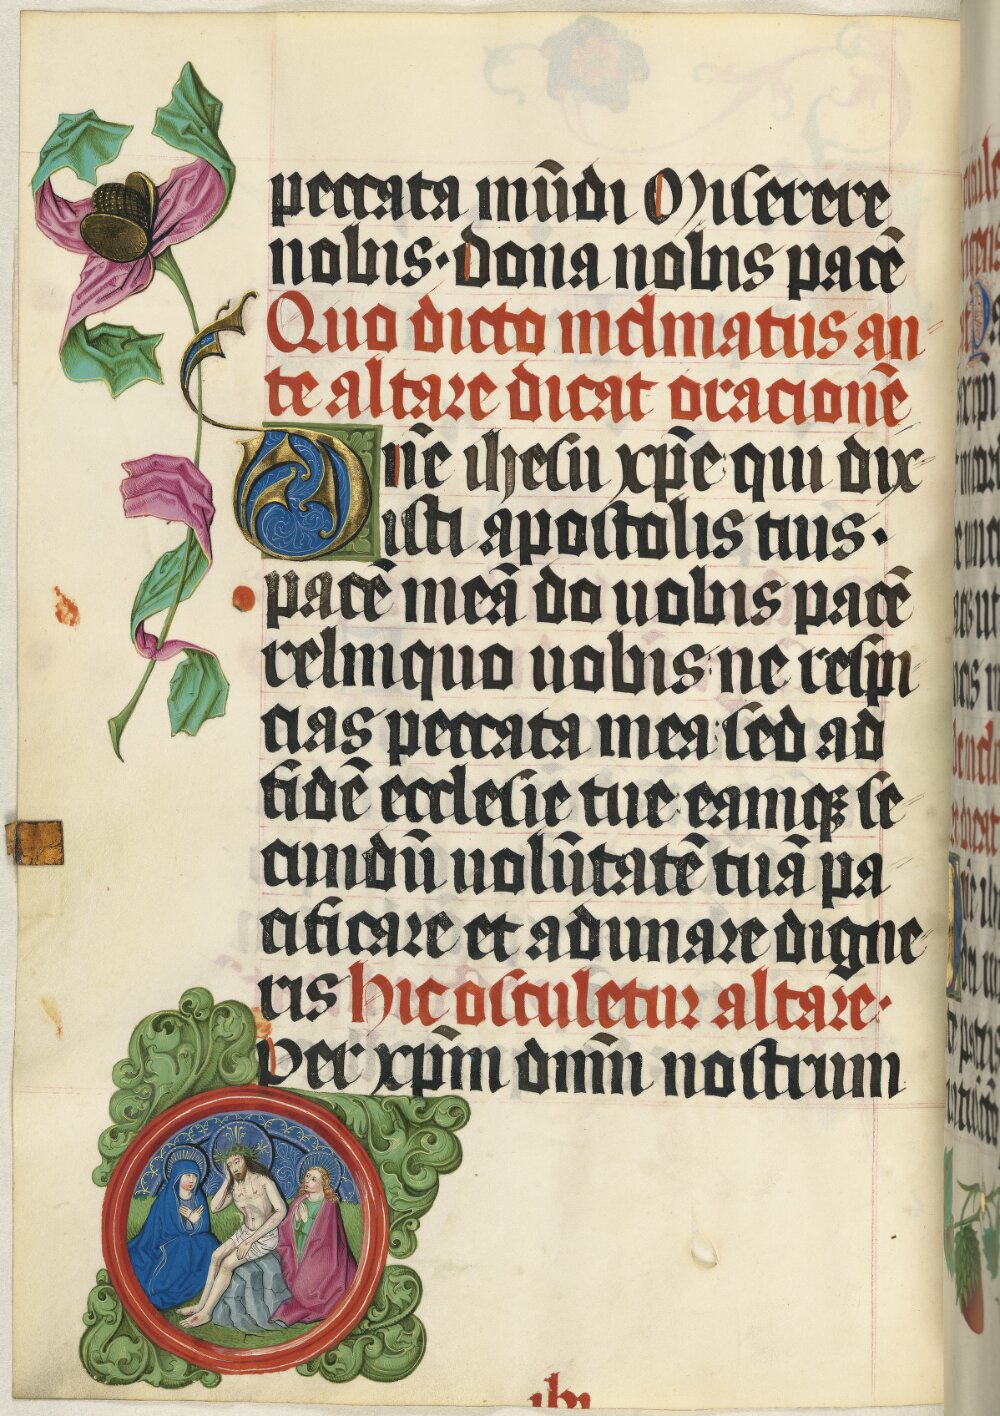 peccata mūdi Miserere
nobis· dona nobis pacē
Quo dicto inclinatus an
te altare dicat oracionē
Dn̄e ihesu xp̄e qui dix
isti apostolis tuis·
pacē meā do uobis pacē
relinquo uobis: ne respi
cias peccata mea: sed ad
fidē ecclesie tue eamqꝫ se
cundū uolūtatē tuā pa
cificare et adunare digne
ris hic osculetur altare·
Per xp̄m dn̄m nostrum